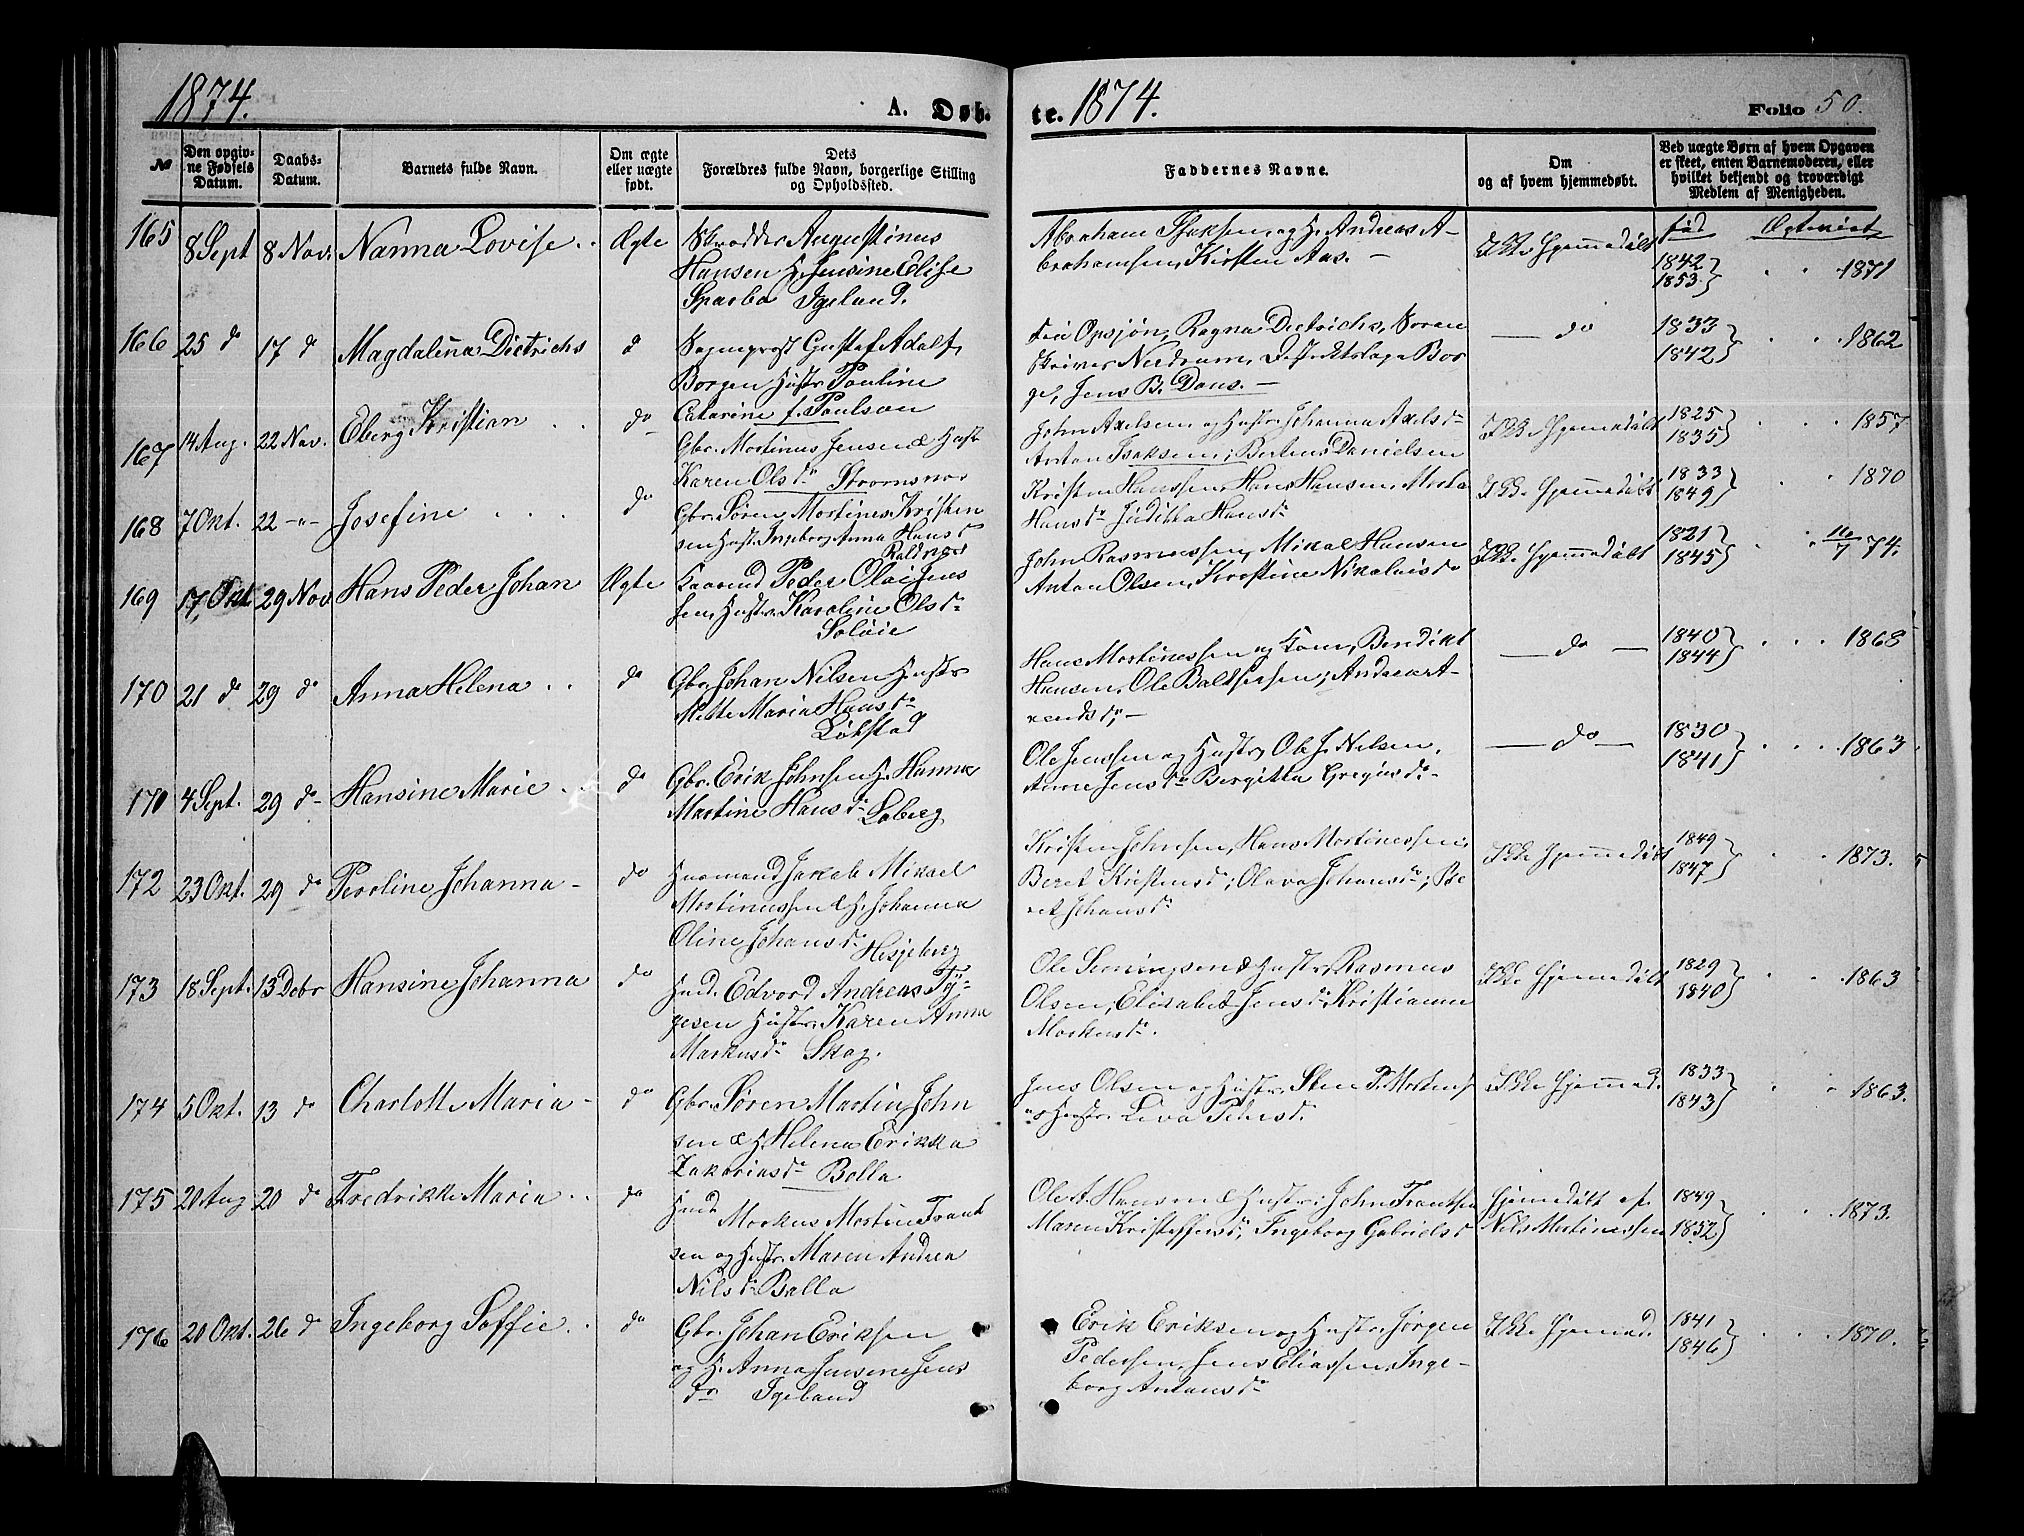 1874.
A. Døb-
te. 1874.
Folio 50.
№
Den opgiv-
ne Fødsels
Datum.
Daabs-
Datum.
Barnets fulde Navn.
Om ægte
eller uægte
født.
Dets
Forældres fulde Navn, borgerlige Stilling
og Opholdssted.
Faddernes Navne.
Om
og af hvem hjemmedøbt.
Ved uægte Børn af hvem Opgaven
er skeet, enten Barnemoderen, eller
hvilket bekjendt og troværdigt
Medlem af Menigheden.
165 8 Sept 8 Nov. Nanna Lovise Ægte
Skrædder Augustinus
Hansen H. Jensine Elise
Igeland.
Abraham Isaksen og H. Andreas A-
brahamsen, Kirsten Aas.
Ikke Hjemmedøbt
fød
1842
1853 1871
166 25 d 17 d Magdalena Dietrichs d
Sogneprest Gustaf Adolf
Borgen Hustr Pauline
Catarine f. Paulson
Ragna Dietrichs, Soren
skriver
Jens B. Dons.
do
1833
1842 1862
167 14 Aug. 22 Nov. Eberg Kristian do
Gbr. Mortinus Jensen & Hustr
Karen Olsdr
John Axelsen og Hustr, Johanna Axelsdr
Anton Isaksen, Danielsen
Ikke Hjemmedøbt
1825
1835 1857
168 7 Okt. 22 -"- Josefine do
Gbr. Søren Mortinus Kristen
sen Hustr. Ingeborg Anna Hansd
Kristen Hanssen, Hans Hansen, Marta
Hansdr Juditha Hansdr
Ikke Hjemmedøbt
1833
1849 1870
169 17, Okt 29 Nov Hans Peder Johan Ægte
Peder Olai Jens
sen, Hustr. Karoline Olsdr
Soløie
John Rasmussen, Mikal Hansen
Anton Olsen, Kirstine Nikolaisdr
Ikke Hjemmedøbt
1821
1845 16/7 74.
170 21 d 29 d Anna Helena do
Gbr. Johan Nilsen Hustr
Mette Maria Hansdr
Løbstad
Hans Mortinussen og Kone, Bendikt
Hansen, Ole Baltsersen,
do
1840
1844 1868
170 4 Sept. 29 d Hansine Marie do
Gbr. Erik Johnsen H. Hanna
Martine Hansdr Loberg
Ole Jenssen og Hustr, Ole J. Nilsen,
Anne Jensdr Bergitta Gregusdr
do
1830
1841 1863
172 23 Okt. 29 do Peroline Johanna do
Husmand Jakob Mikael
Mortinussen & H. Johanna
Oline Johansdr Hesjeberg
Kristen Johnsen, Hans Mortinussen,
Beret Kristensdr; Olava Johansdr; Be
ret Johansdr
Ikke Hjemmedøbt
1849
1847 1873.
173 18 Sept. 13 Debr Hansine Johanna do
Husd. Edvard Andreas Ty-
gesen Hustr, Karen Anna
Markusdr Skog.
Ole Simonsen & Hustr, Rasmus
Olsen, Elisabet Jensdr Kristianna
Markusdr.
Ikke Hjemmedøbt
1829
1840 1863
174 5 Okt. 13 do Charlotte Maria do
Gbr. Søren Martin John
sen & H. Helena Erikka
Zakariasdr Bolla
Jens Olsen og Hustr, Sten P. Mortens
Hustr. Liva Pedersdr.
Ikke Hjemmed.
1833
1843 1863.
175 20 Aug 20 do Fredrikke Maria do
Husd
Markus Mortin Frant
sen og Hustr. Maren Andrea
Nilsdr Bolla
Ole A. Hansen & Hustr: John Frantsen
Maren Kristoffersd; Ingeborg Gabrielsd
Hjemmedøbt af
Nils Mortinussen
1849
1852 1873.
176 20 Okt. 26 d Ingeborg Soffie do
Gbr. Johan Eriksen
og H. Anna Jensine Jens
dr Igeland
Erik Eriksen og Hustr, Jørgen
Pedersen, Jens Eliassen, Inge-
borg Antonsdr
Ikke Hjemmed.
1841
1846 1870.